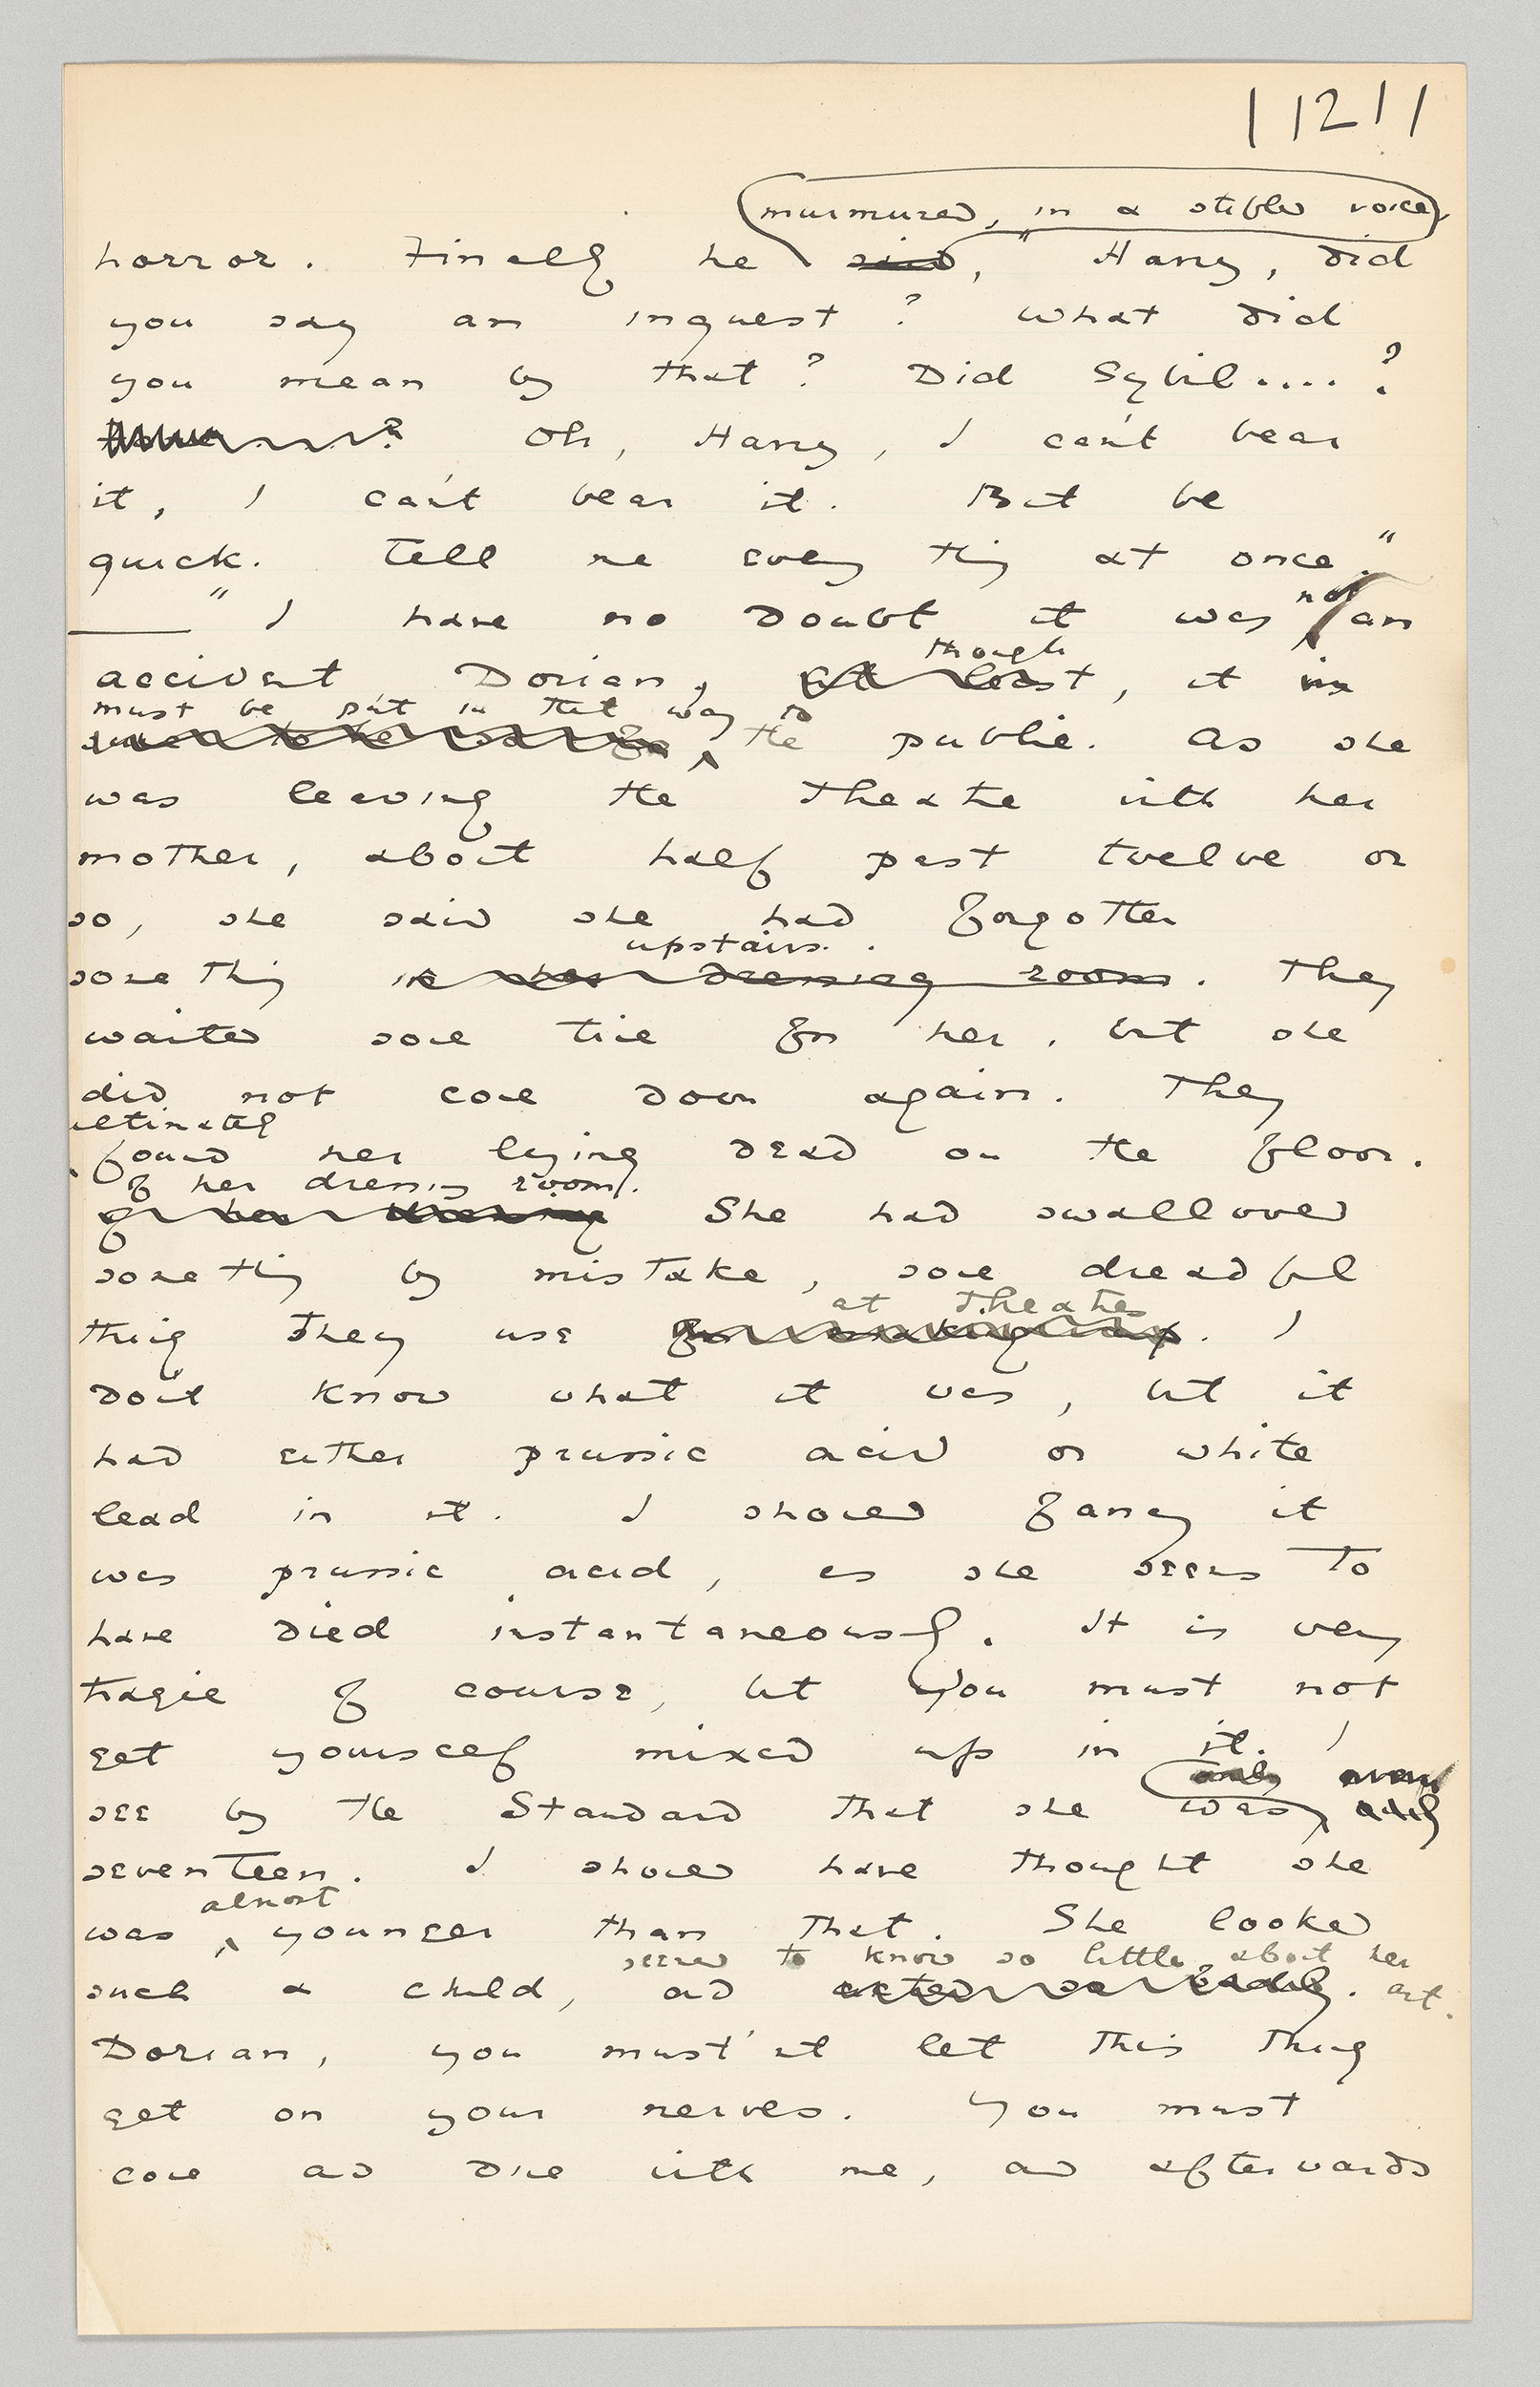 | 121 |
murmured, in a stifled voice,
horror. Finally he said, "Harry, did
you say an inquest? What did
you mean by that? Did Sybil....?
Oh, Harry, I can't bear
it, I can't bear it. But be
quick. Tell me every thing at once."
not
"I have no doubt it was an
though
accident Dorian, at least, it is
must be put in that way to
the public. As she
was leaving the theatre with her
mother, about half past twelve or
so, she said she had forgotten
upstairs.
something in her dressing room. They
waited some time for her, but she
did not come down again. They
ultimately
found her lying dead on the floor.
of her dressing room.
of her dressing She had swallowed
something by mistake, some dreadful
at theatres
thing they use for making up. I
don't know what it was, but it
had either prussic acid or white
lead in it. I should fancy it
was prussic acid, as she seems to
have died instantaneously. It is very
tragic of course, but you must not
get yourself mixed up in it. I
see by the Standard that she was only
seventeen. I should have thought she
almost
was younger than that. She looked
seemed to know so little about her
such a child, and acted so badly. art.
Dorian, you must'nt let this thing
get on your nerves. You must
come and dine with me, and afterwards